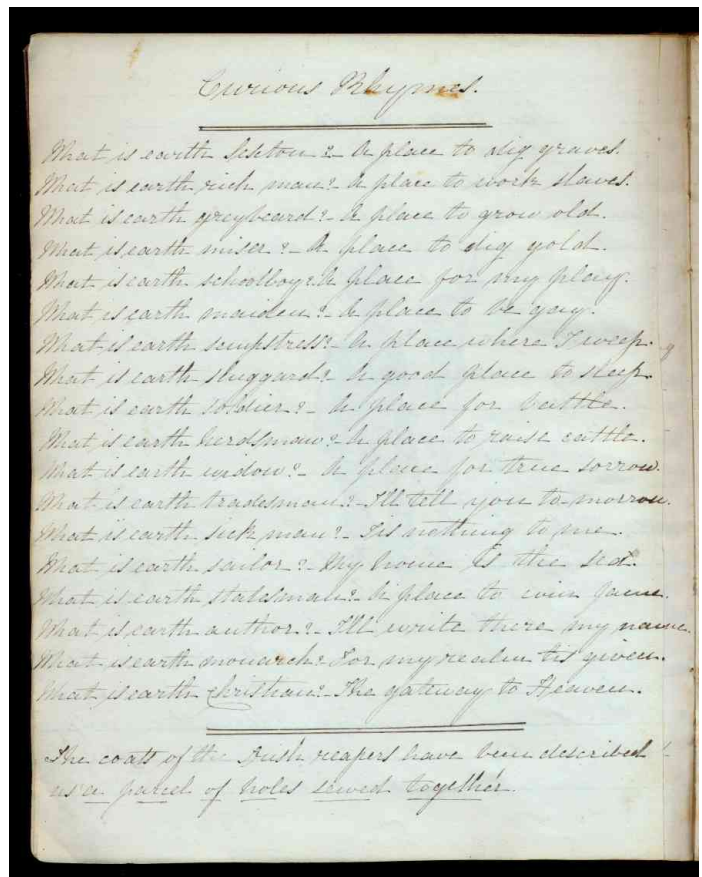 Curious Rhymes.
What is earth Sexton?- A place to dig graves.
What is earth rich man?- A place to work slaves.
What is earth greybeard?- A place to grow old.
What is earth miser?- A place to dig gold.
What is earth schoolboy? A place for my play.
What is earth maiden?- A place to be gay.
What is earth sempstress?- A place where I weep.
What is earth sluggard?- A good place to sleep.
What is earth soldier?- A place for battle.
What is earth herdsman?- A place to raise cattle.
What is earth widow?- A place for true sorrow.
What is earth tradesman?- I'll tell you to morrow.
What is earth sick man?- Tis nothing to me.
What is earth sailor?- My home is the sea.
What is earth statesman?- A place to win fame.
What is earth author?- I'll write there my name.
What is earth monarch? For my realm tis given.
What is earth Christian?- The gateway to Heaven.
The coats of the Irish reapers have been described
as a parcel of holes sewed together.